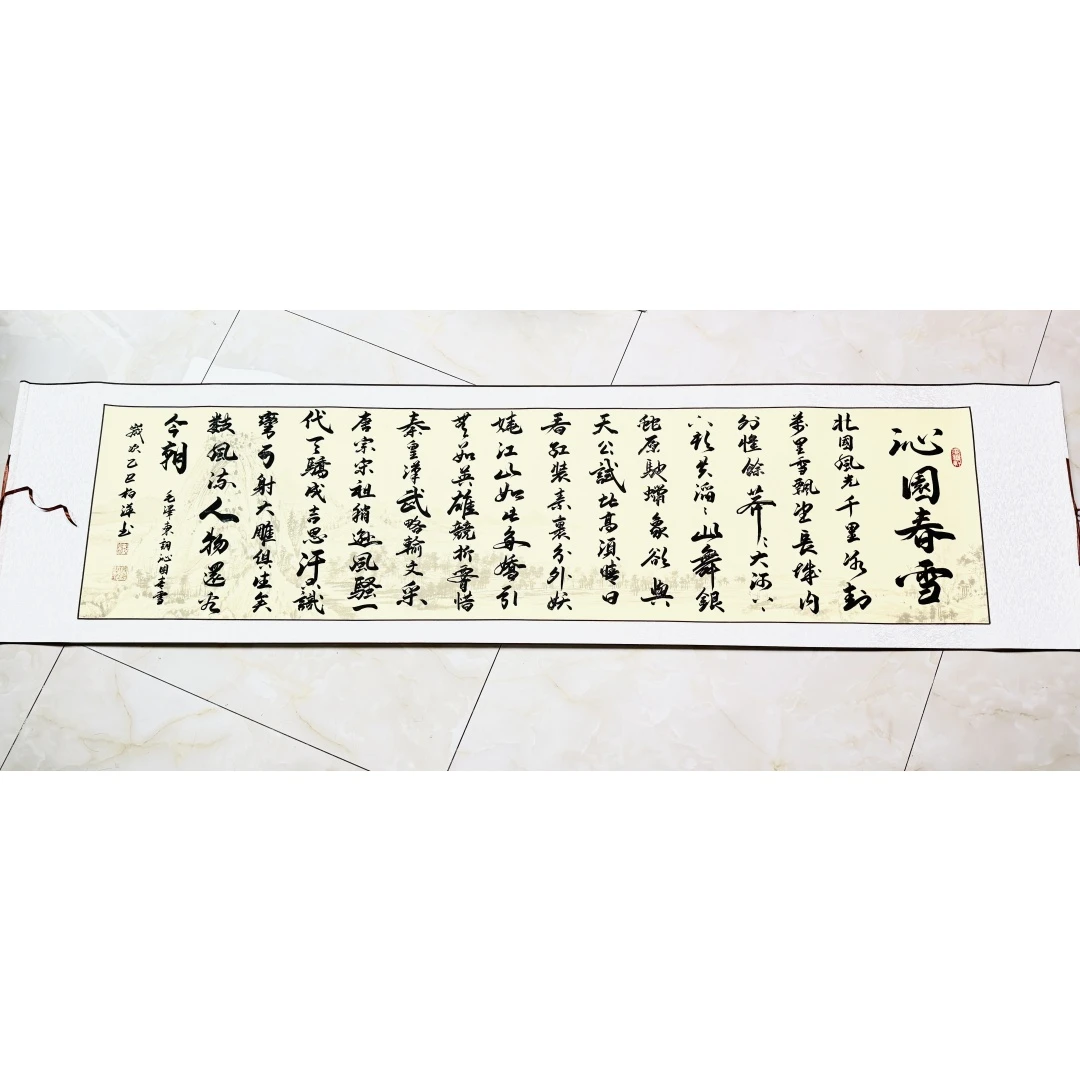 沁園春雪
北國風光千里冰封
萬里雪飄望長城内
外惟餘莽〻大河上
下頓失滔〻山舞銀
蛇原馳蠟象欲與
天公試比高須晴日
看紅裝素裹分外妖
嬈江山如此多嬌引
無數英雄競折腰惜
秦皇漢武略輸文采
唐宗宋祖稍遜風騷一
代天驕成吉思汗只識
彎弓射大雕俱往矣
數風流人物還看
今朝
毛澤東詞沁園春雪
歲次乙巳书